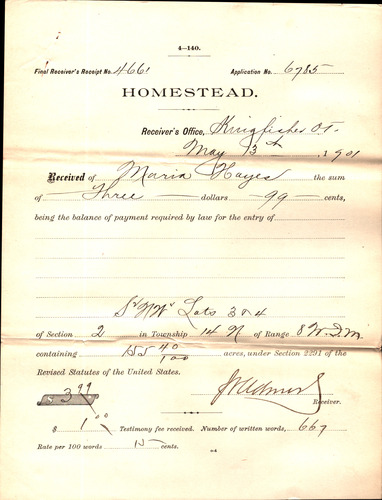 4—140.
Final Receiver's Receipt No. 4661 Application No. 6785
HOMESTEAD.
Receiver's Office, Kingfisher O.T.
May 13th, 1901
Received of Maria Hayes the sum
of Three dollars 99 cents,
being the balance of payment required by law for the entry of
S½ NW¼ Lots 3 & 4
of Section 2 in Township 14 N of Range 8 W.I.M.
containing 155 40/100 acres, under Section 2291 of the
Revised Statutes of the United States.
$ 3.99
Receiver.
$ 1.00 Testimony fee received. Number of written words, 667
Rate per 100 words 15 cents.